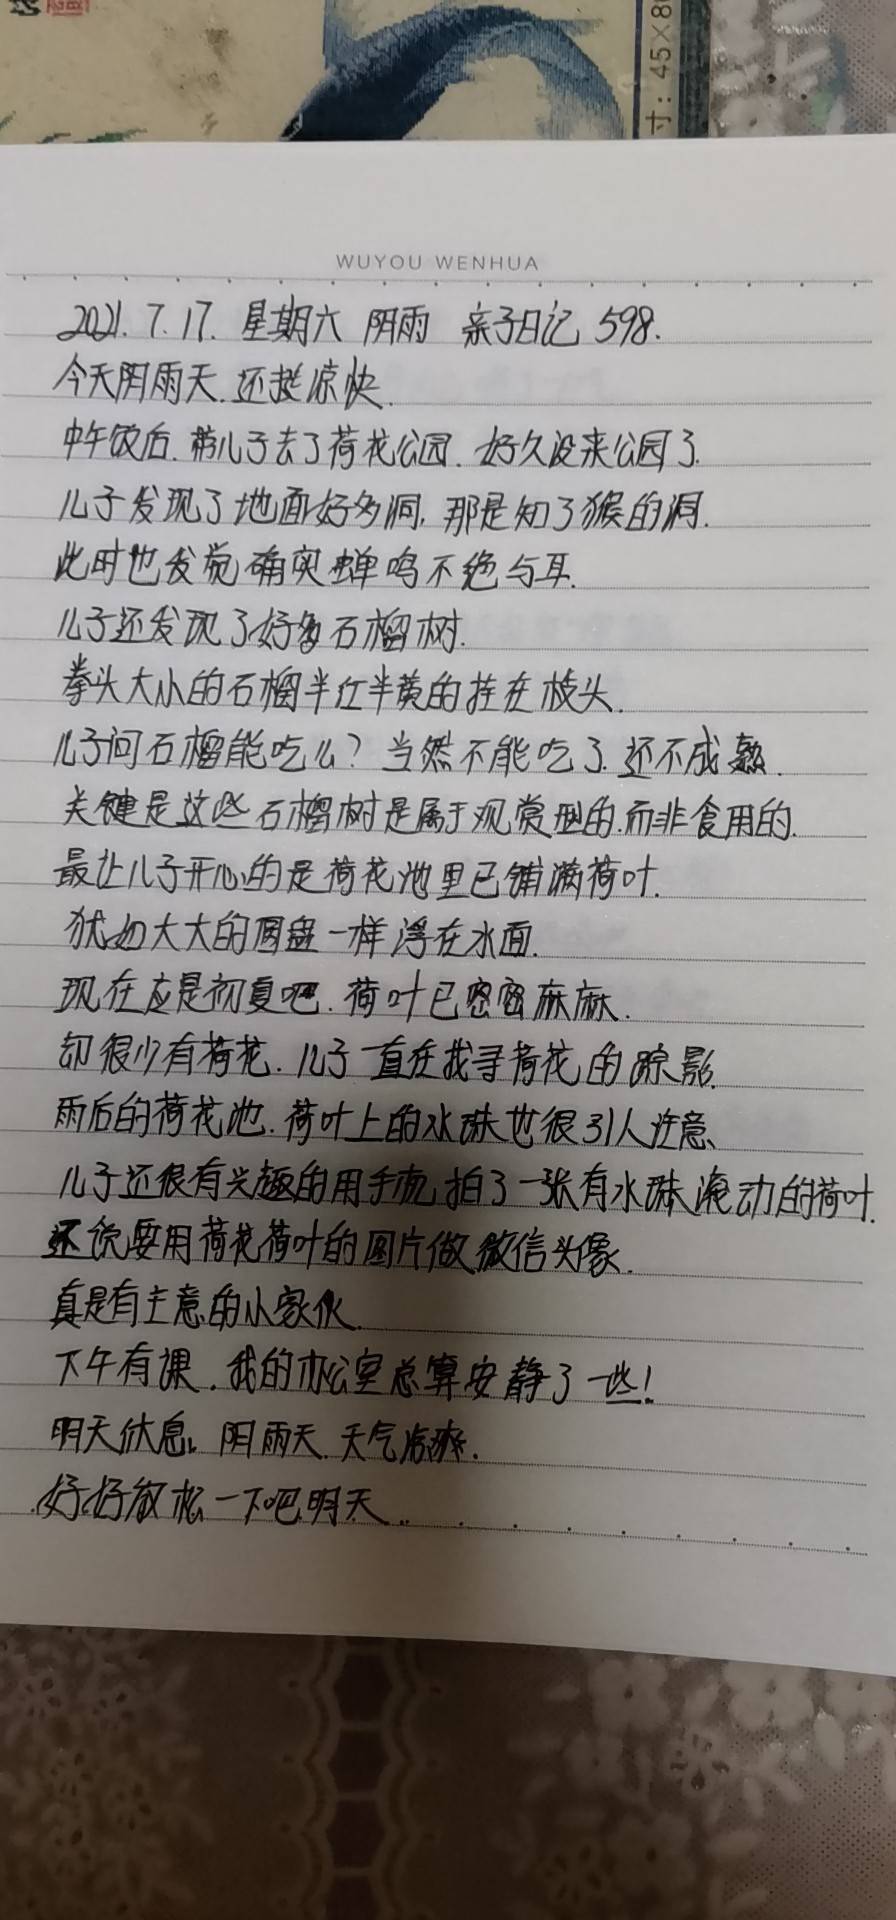 寸：45×8
WUYOU WENHUA
2021.7.17. 星期六 阴雨 亲子日记 598.
今天阴雨天.还挺凉快.
中午饭后.带儿子去了荷花公园.好久没来公园了.
儿子发现了地面好多洞,那是知了猴的洞.
此时也发觉确实蝉鸣不绝与耳.
儿子还发现了好多石榴树.
拳头大小的石榴半红半黄的挂在枝头.
儿子问石榴能吃么？当然不能吃了.还不成熟.
关键是这些石榴树是属于观赏型的.而非食用的.
最让儿子开心的是荷花池里已铺满荷叶.
犹如大大的圆盘一样浮在水面.
现在应是初夏吧.荷叶已密密麻麻.
却很少有荷花.儿子一直在找寻荷花的踪影.
雨后的荷花池.荷叶上的水珠也很引人注意、
儿子还很有兴趣的用手机拍了一张有水珠滚动的荷叶.
还说要用荷花荷叶的图片做微信头像.
真是有主意的小家伙.
下午有课.我的办公室总算安静了一些!
明天休息.阴雨天.天气凉爽.
好好放松一下吧明天..